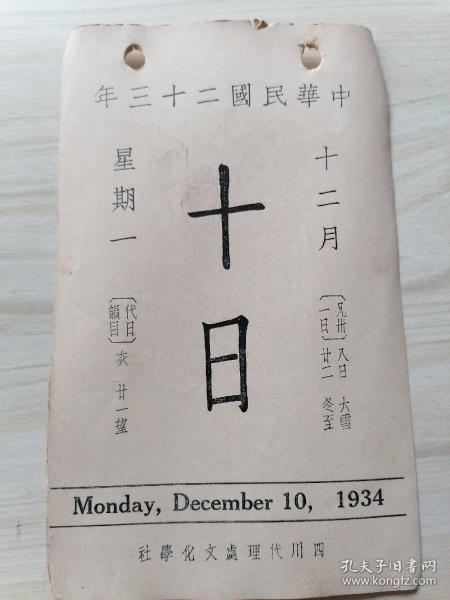 中華民國二十三年
十二月
十日
星期一
〔兄卅一日〕
八日 大雪
廿二 冬至
〔代日韻目〕灰 廿一望
Monday, December 10, 1934
四川代理處文化學社
孔夫子旧书网
www.kongfz.com